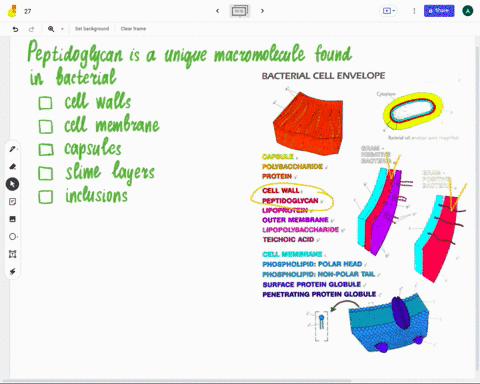 27
Share
A
Set background
Clear frame
Peptidoglycan is a unique macromolecule found
in bacterial
cell walls
cell membrane
capsules
slime layers
inclusions
BACTERIAL CELL ENVELOPE
Cytoplasm
CAPSULE
POLYSACCHARIDE
PROTEIN
CELL WALL
PEPTIDOGLYCAN
LIPOPROTEIN
OUTER MEMBRANE
LIPOPOLYSACCHARIDE
TEICHOIC ACID
CELL MEMBRANE
PHOSPHOLIPID: POLAR HEAD
PHOSPHOLIPID: NON-POLAR TAIL
SURFACE PROTEIN GLOBULE
PENETRATING PROTEIN GLOBULE
GRAM -
NEGATIVE
BACTERIA
GRAM -
POSITIVE
BACTERIA